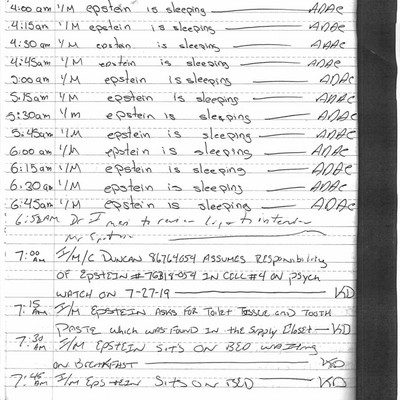 4:00 am I/M epstein is sleeping — ADAC
4:15am I/M epstein is sleeping — ADAC
4:30 am I/M epstein is sleeping — ADAC
4:45am I/M epstein is sleeping — ADAC
5:00am I/M epstein is sleeping — ADAC
5:15am I/M epstein is sleeping — ADAC
5:30am I/m epstein is sleeping — ADAC
5:45am I/M epstein is sleeping — ADAC
6:00 am I/M epstein is sleeping — ADAC
6:15am I/M epstein is sleeping — ADAC
6:30am I/M epstein is sleeping — ADAC
6:45am I/M epstein is sleeping — ADAC
6:58AM Dr I to review to
Mr Epstein
7:00 AM I/M/C DUNCAN 86764054 ASSUMES RESPONSIBILITY
OF EPSTEIN # 76318-054 IN CELL #4 ON PSYCH
WATCH ON 7-27-19 — KD
7:15 AM I/M EPSTEIN ASKS FOR TOILET TISSUE AND TOOTH
PASTE which was FOUND IN THE SUPPLY CLOSET — KD
7:30 AM I/M EPSTEIN SITS ON BED WAITING
ON BREAKFAST — KD
7:45 AM I/M EPSTEIN SITS ON BED — KD